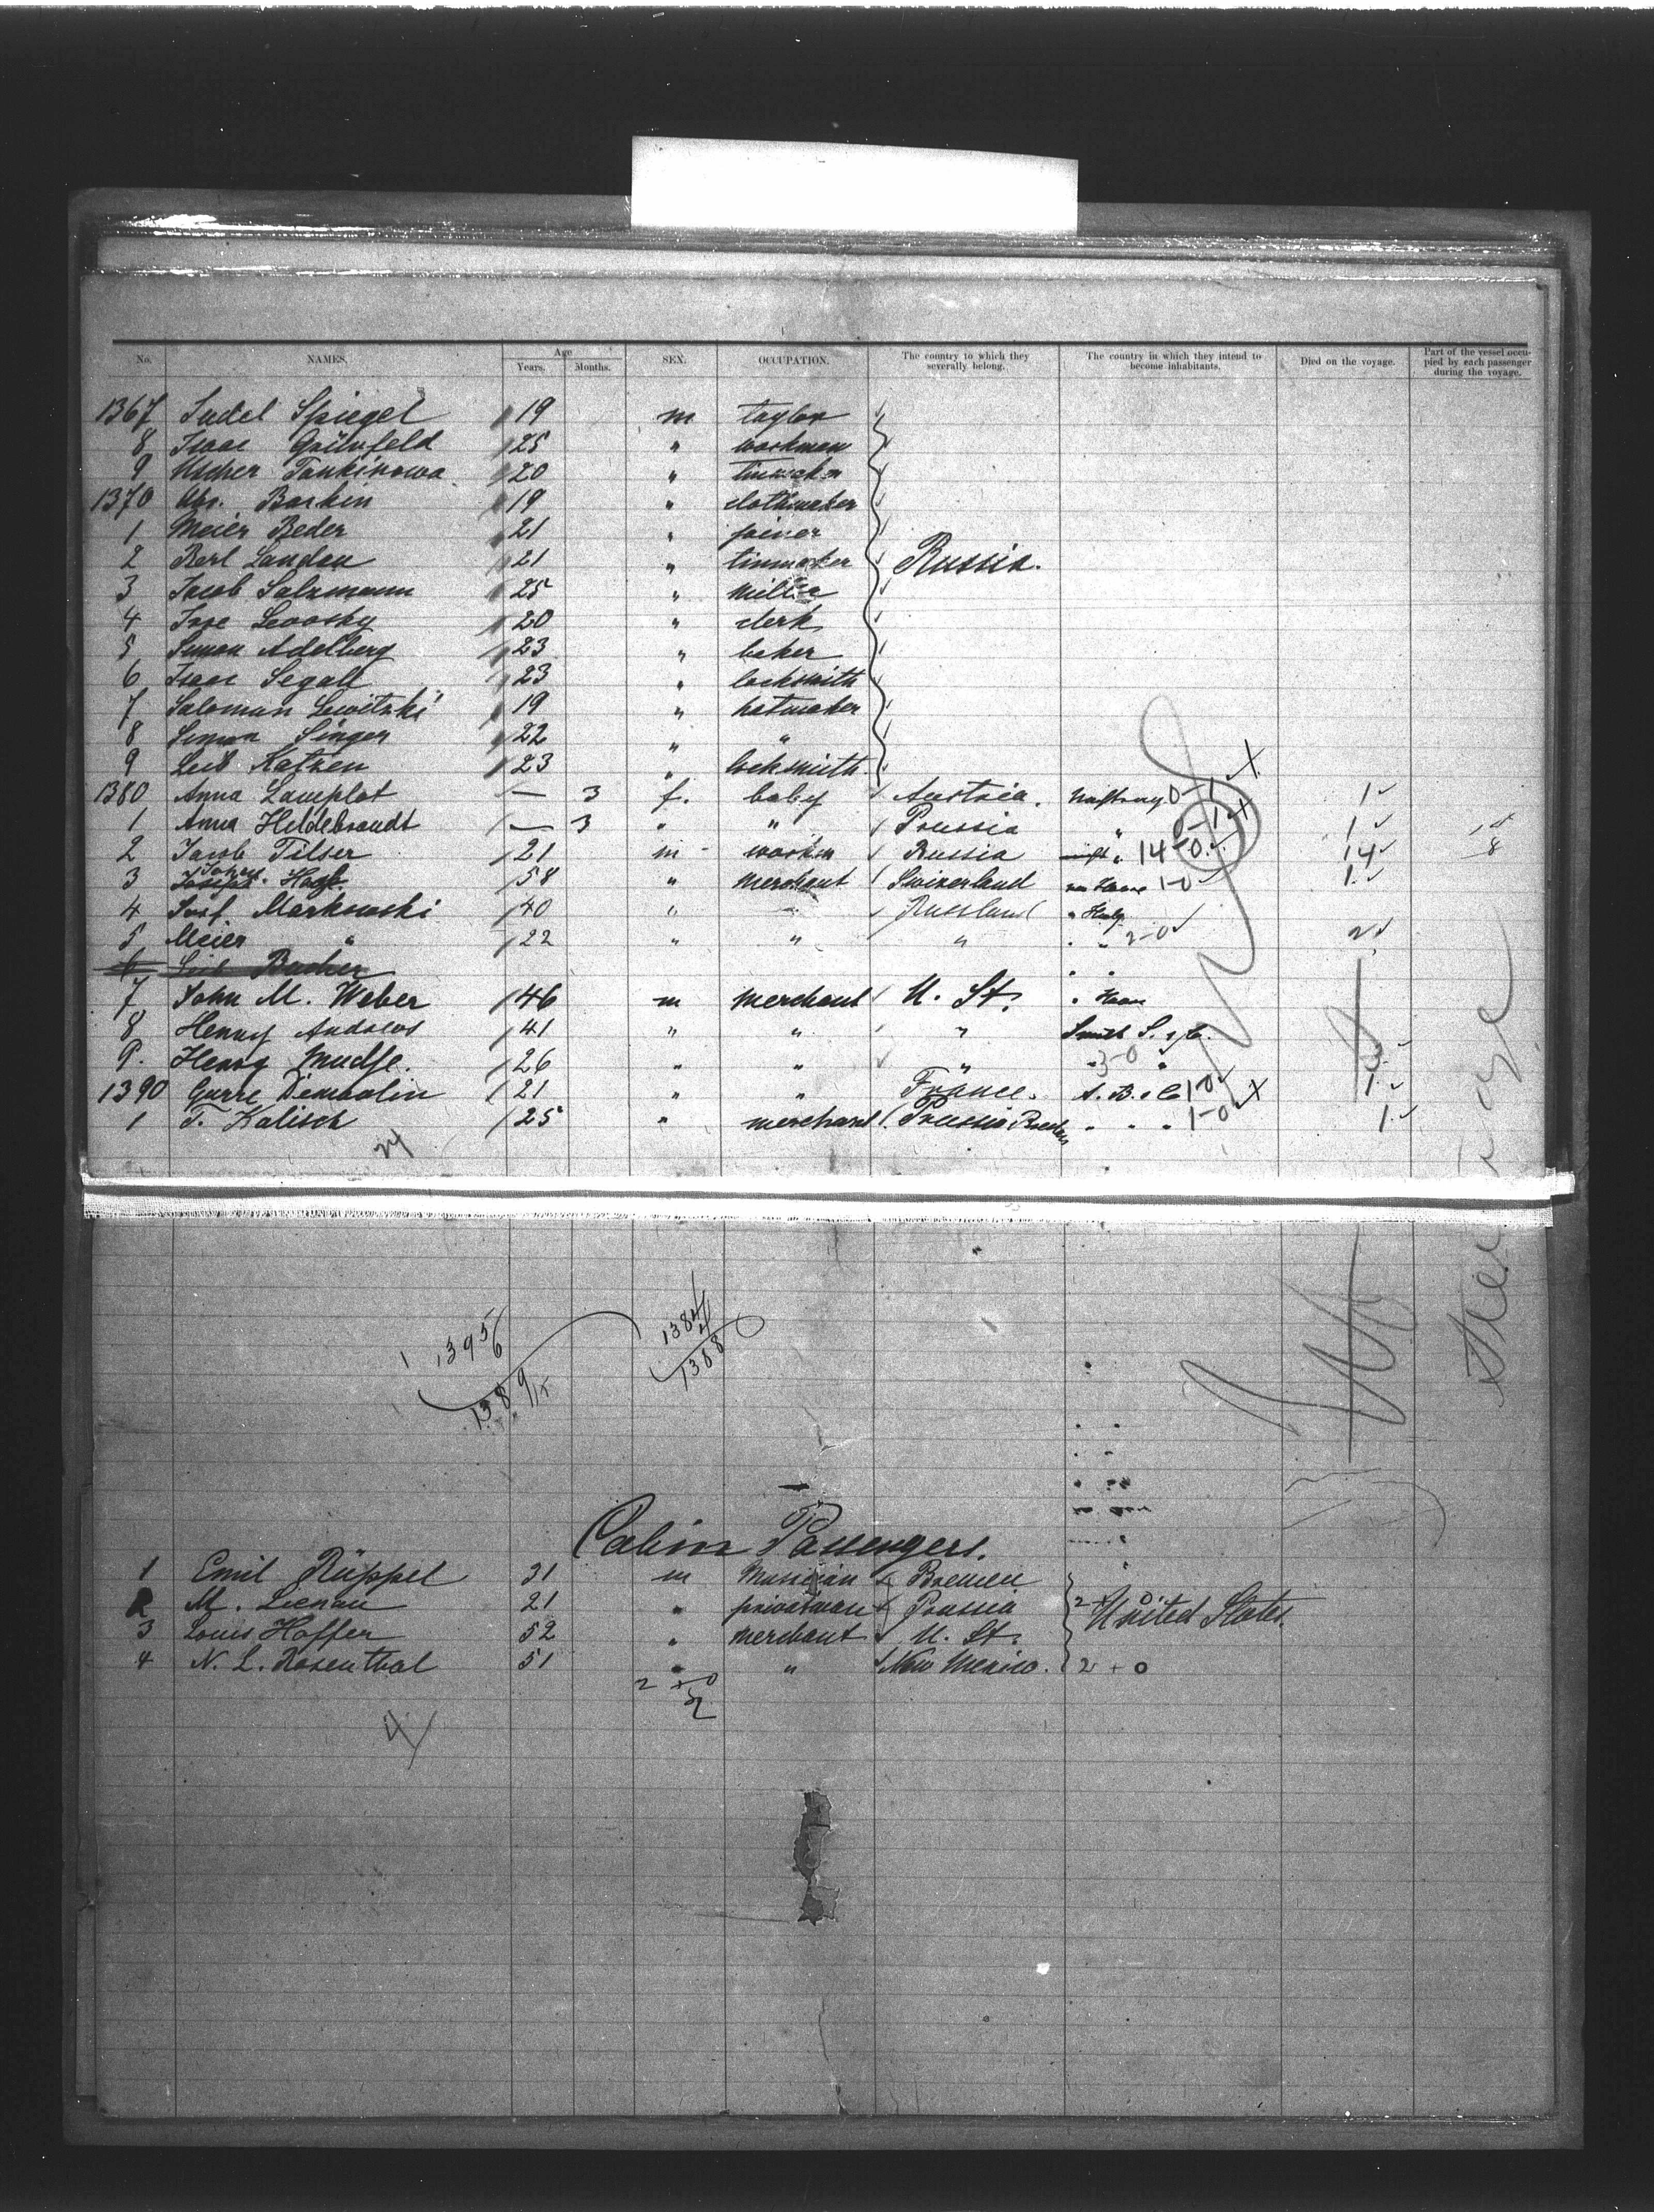 No. NAMES. Age Years. Months. SEX. OCCUPATION. The country to which they severally belong. The country in which they intend to become inhabitants. Died on the voyage. Part of the vessel occupied by each passenger during the voyage.
1367 Judel Spiegel 19 m taylor
8 Isaac Grünfeld 25 " workman
9 Uscher 20 "
1370 Abr. Barken 19 " clothmaker
1 Meier Beder 21 " joiner
2 Berl Landau 21 " tinmaker Russia.
3 Jacob Salzmann 25 "
4 Lososky 20 " clerk
5 Simon Adelberg 23 " baker
6 Isaac Segall 23 " locksmith
7 Saloman Lewitzki 19 " hatmaker
8 Simon Singer 22 " "
9 Leib Katzen 23 " locksmith
1380 Anna — 3 f. baby Austria. 0-1 1
1 Anna Hildebrandt — 3 " " Prussia " 0-1 1
2 Jacob Tilser 21 m Russia " 14-0 14
3 58 " merchant Swizerland 1-0 1
4 Markowski 40 " Russland "
5 Meier " 22 " " " " " 2-0 2
6 Leib Bacher " "
7 John M. Weber 46 m merchant U. St. "
8 Henry Andrews 41 " " "
9. Henry Mudge. 26 " " " 3-0 3
1390 21 " " France. 1-0 1
1 T. Kalisch 25 " merchant Prussia " " " 1-0 1
24
Steerage
1395/6
1389
1384/4
1388
Cabin Passengers.
1 Emil Rüppel 31 m Musician Bremen
2 M. Lienau 21 " privatman Prussia 2 + 0 United States.
3 Louis Haffer 52 " merchant U. St.
4 N. L. Rosenthal 51 " " New Mexico. 2 + 0
2 + 0
2
4